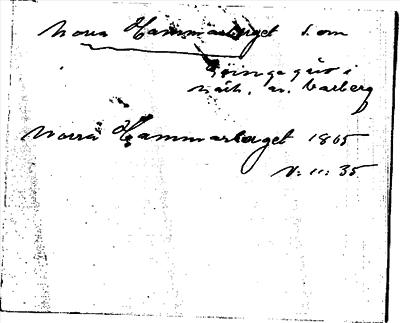 Norra Hammarberget s. om
Gringe gruv i
närh. av Varberg
Norra Hammarberget 1865
V: 11: 35